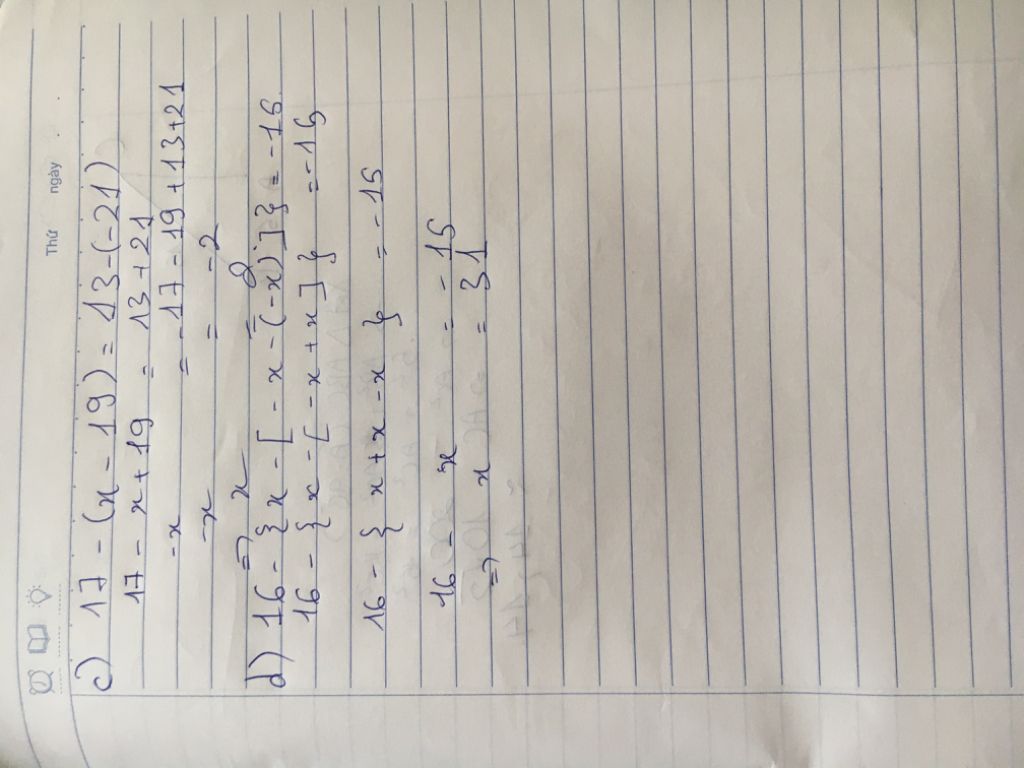 Thứ ngày
c) 17 - (x - 19) = 13 - (-21)
17 - x + 19 = 13 + 21
-x = -17 - 19 + 13 + 21
-x = -2
=> x = 2
d) 16 - { x - [ - x - (-x) ] } = -15
16 - { x - [ - x + x ] } = -15
16 - { x + x - x } = -15
16 - x = -15
=> x = 31